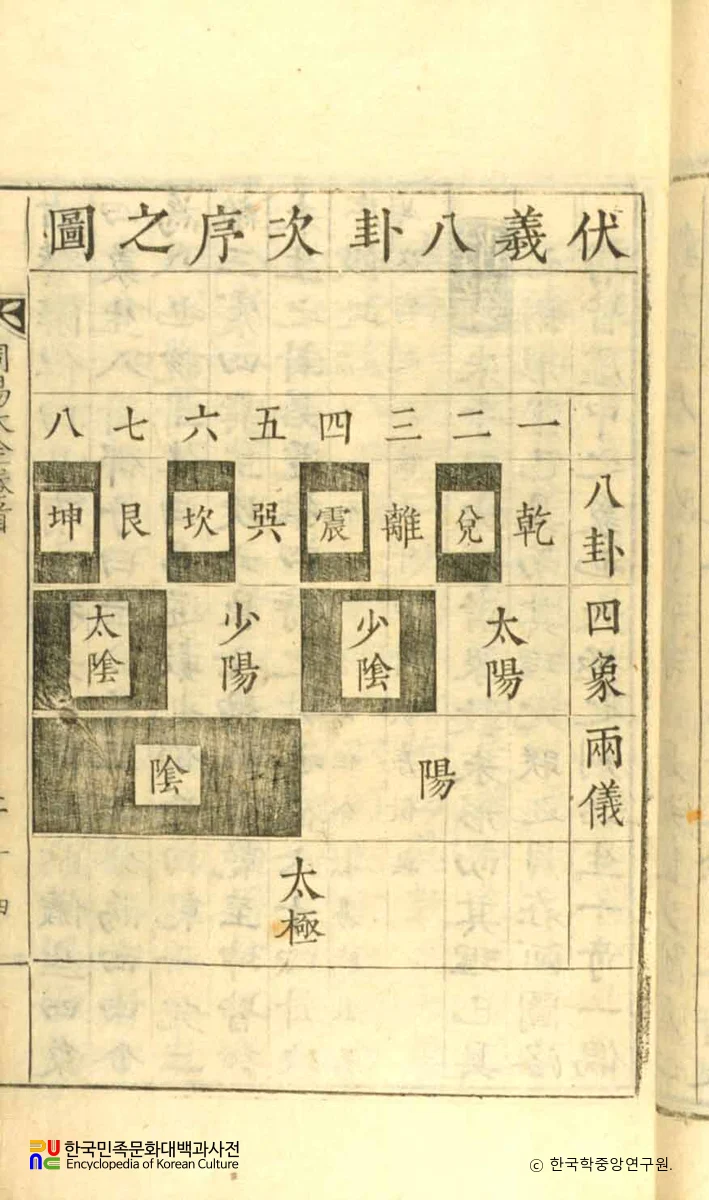 伏羲八卦次序之圖
一 二 三 四 五 六 七 八
八卦 乾 兌 離 震 巽 坎 艮 坤
四象 太陽 少陰 少陽 太陰
兩儀 陽 陰
太極
周易大全
二十四
한국민족문화대백과사전
Encyclopedia of Korean Culture
© 한국학중앙연구원.